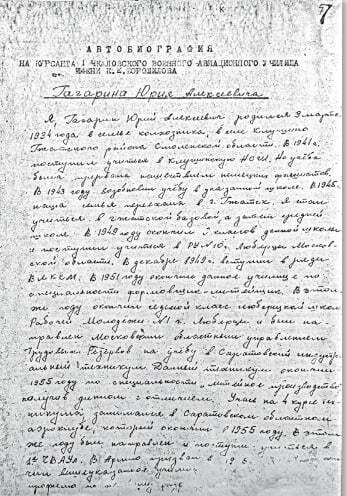 7
АВТОБИОГРАФИЯ
НА КУРСАНТА 1 ЧКАЛОВСКОГО ВОЕННОГО АВИАЦИОННОГО УЧИЛИЩА
ИМЕНИ К.Е. ВОРОШИЛОВА
Гагарина Юрия Алексеевича
Я, Гагарин Юрий Алексеевич родился 9 марта
1934 года в семье колхозника, в селе Клушино
Гжатского района Смоленской области. В 1941 г.
поступил учиться в Клушинскую НСШ. Но учеба
была прервана нашествием немецких фашистов.
В 1943 году возобновил учебу в указанной школе. В 1945
наша семья переехала в г. Гжатск. Я стал
учиться в Гжатской базовой, а затем средней
школе. В 1949 году окончил классов данной школы
и поступил учиться в РУ №10 г. Люберцы Москов-
ской области. В декабре 1949 г. вступил в ряды
ВЛКСМ. В 1951 году окончил данное училище по
специальности формовщик-литейщик. В этом
же году окончил седьмой класс люберецкой школы
Рабочей Молодежи №1 г. Люберцы и был на-
правлен Московским областным управлением
Трудовых Резервов на учебу в Саратовский индустри-
альный техникум. Данный техникум окончил
1955 году по специальности "литейное производство"
получив диплом с отличием. Учась на 4 курсе тех-
никума занимался в Саратовском областном
аэроклубе, который окончил в 1955 году. В этом
же году был направлен и поступил учиться в
1-е ЧВАУЛ. В Армию призван в
чии вышеуказанное училище